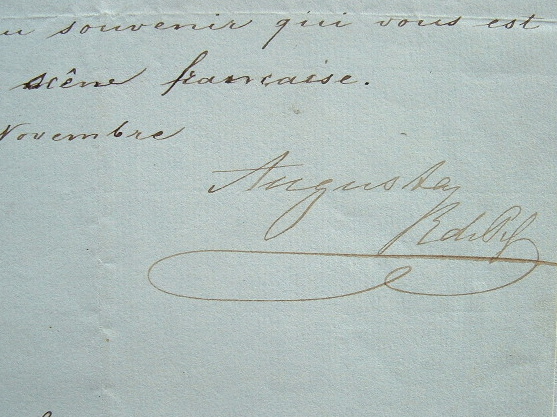 souvenir qui vous est
scêne française.
Novembre
Augusta